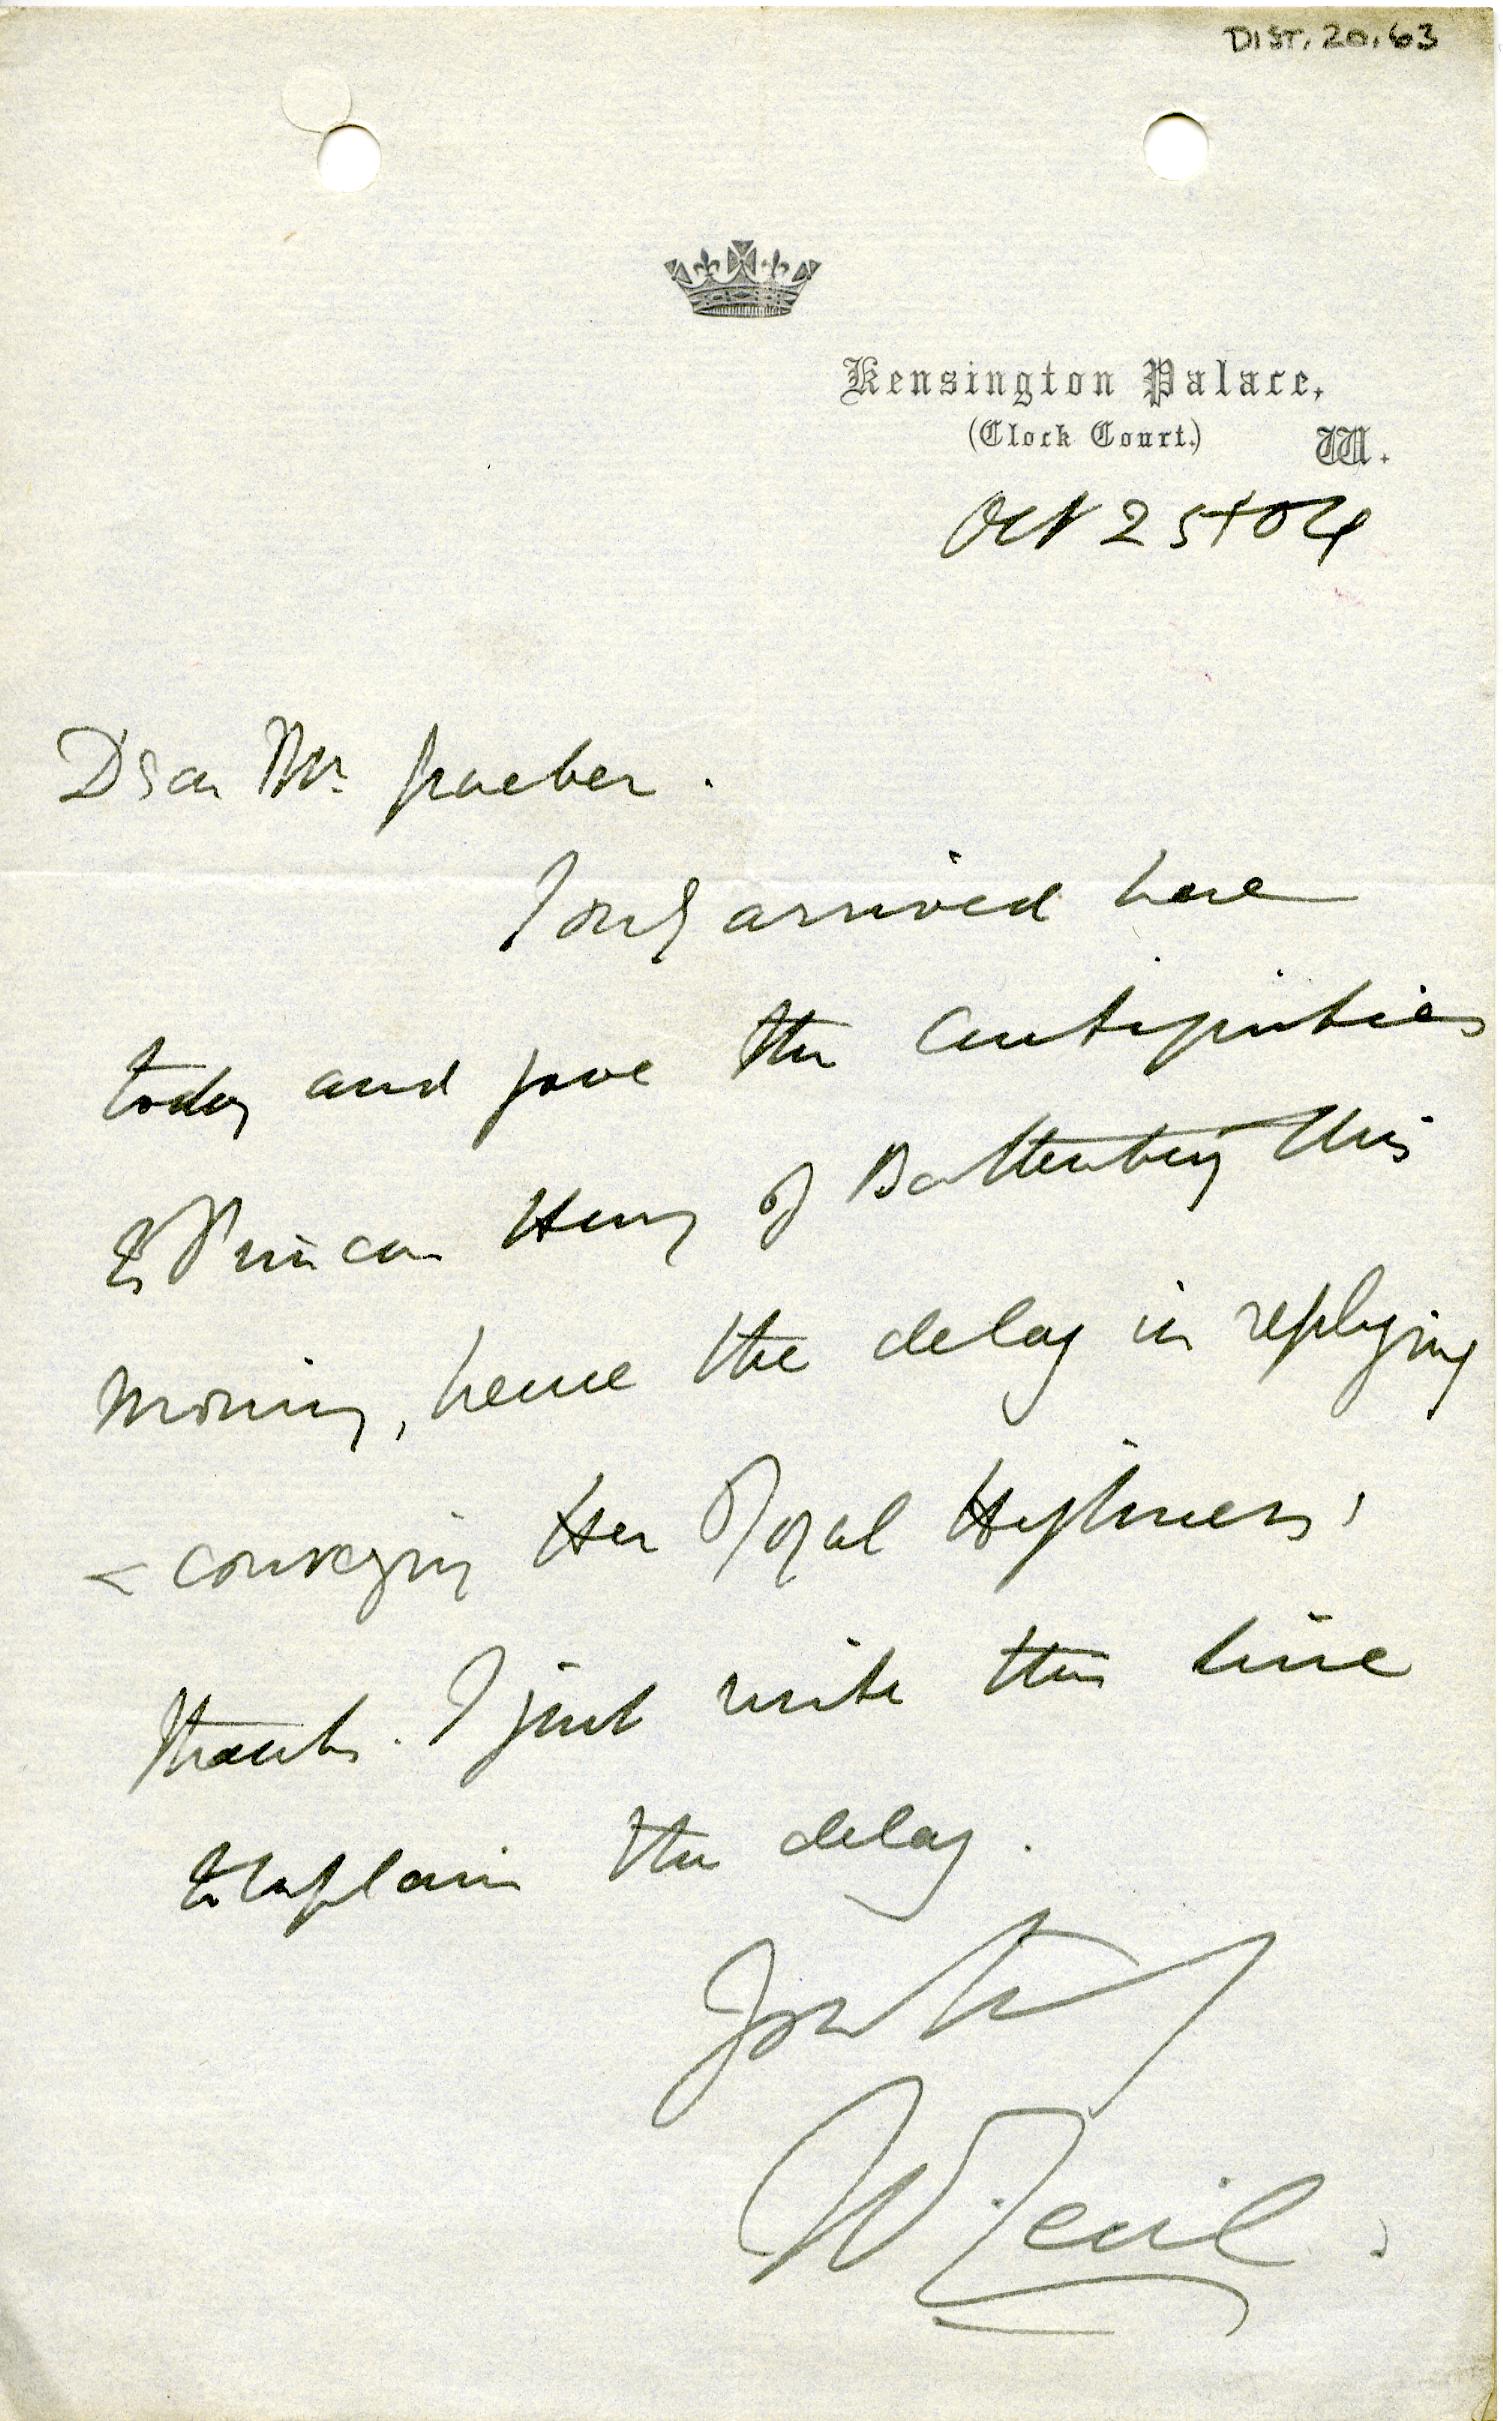 DIST. 20.63
Kensington Palace,
(Clock Court.) W.
Oct 25 + 04
Dear Mr.
I only arrived here
today and gave the antiquities
to Princess Henry of Battenberg this
morning, hence the delay in replying
& conveying Her Royal Highness'
thanks. I just write this line
to explain the delay.
W Cecil.